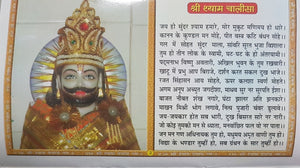 श्री श्याम चालीसा
जय हो सुंदर श्याम हमारे, मोर मुकुट मणिमय हो धारे।
कानन के कुण्डल मन मोहे, पीत वस्त्र कटि बंधन सोहे।
गल में सोहत सुंदर माला, सांवरि सूरत भुज विशाला।
तुम हो तीन लोक के स्वामी, घट घट के हो अंतरयामी।
पद्मनाभ विष्णु अवतारी, अखिल भुवन के तुम रखवारी।
खाटू में प्रभु आप बिराजे, दर्शन करत सकल दुःख भाजे।
रजत सिंहासन आय सोहते, ऊपर कलशा स्वर्ण मोहते।
अगम अनूप अच्युत जगदीशा, माधव सुर नरपति सुरईशा।
बाजत नौबत शंख नगारे, घंटा झालर अति झनकारे।
माखन मिश्री भोग लगावे, नित्य पुजारी चंवर ढुलावे।
जय-जयकार होत सब भारी, दुःख बिसरत सारे नर नारी।
जो कोई तुमको मन से ध्याता, मनवांछित फल वो नर पाता।
जन मन गण अधिनायक तुम हो, मधुमय अमृत वाणी तुम हो।
विद्या के भण्डार तुम्हीं हो, सब ग्रंथन के सार तुम्हीं हो।